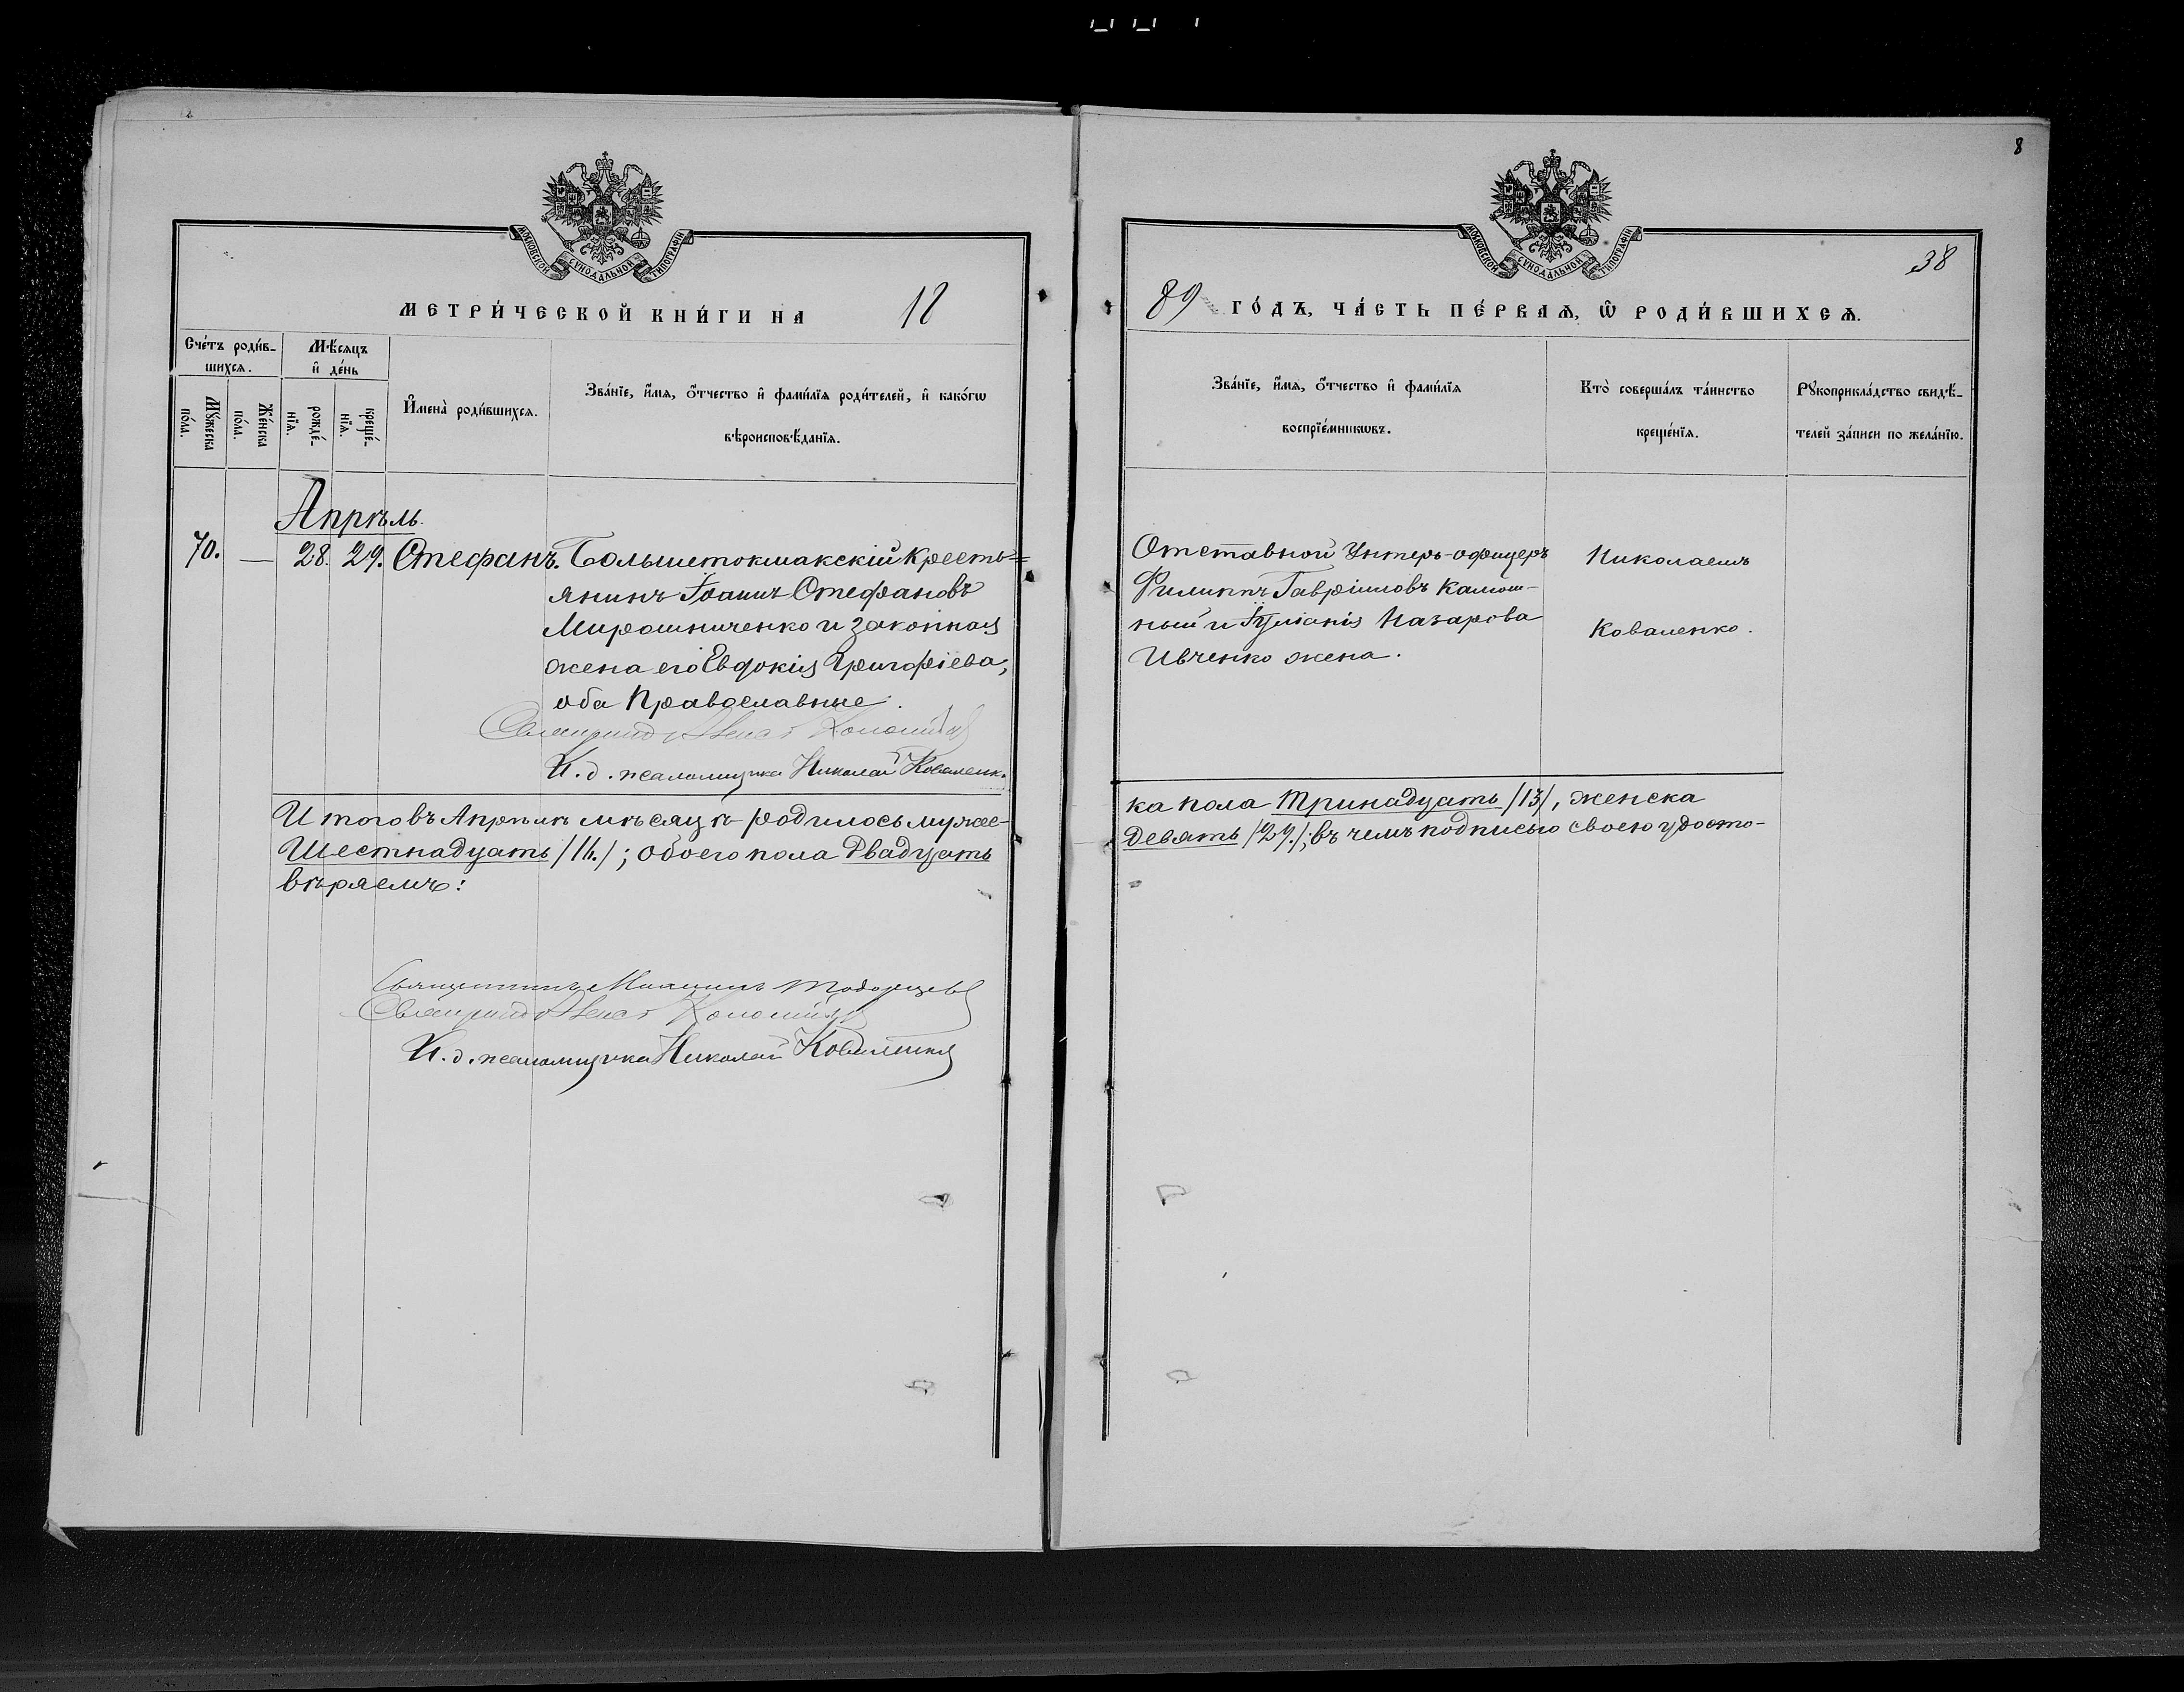 8
МОСКОВСКОЙ СУНОДАЛЬНОЙ ТИПОГРАФІИ
МЕТРИ́ЧЕСКОЙ КНИ́ГИ НА 18
Сче́тъ роди́в-
шихсѧ.
Мѣ́сѧцъ
и҆ де́нь
Мꙋ́жеска
по́ла.
Же́нска
по́ла.
рожде́-
нїѧ.
креще́-
нїѧ.
И҆мена̀ роди́вшихсѧ.
Зва́нїе, и҆́мѧ, ѻ҆́тчество и҆ фами́лїѧ роди́телей, и҆ како́гѡ
вѣроисповѣ́данїѧ.
Апрѣль.
70. — 28. 29. Стефанъ. Большетокмакскій кресть=
янинъ Іоаннъ Стефановъ
Мирошниченко и законная
жена его Евдокія Григоріева,
оба Православные.
И. д. псаломщика Николай Коваленк.
Итого въ Апрѣлѣ мѣсяцѣ родилось мужес-
Шестнадцать /16./; обоего пола Двадцать
вѣряемъ:
Священникъ
И. д. псаломщика Николай Коваленко
МОСКОВСКОЙ СУНОДАЛЬНОЙ ТИПОГРАФІИ
38
89 ГО́ДЪ, ЧА́СТЬ ПЕ́РВАѦ, Ѽ РОДИ́ВШИХСѦ.
Зва́нїе, и҆́мѧ, ѻ҆́тчество и҆ фами́лїѧ
воспрїе́мникѡвъ.
Кто̀ соверша́лъ та́инство
креще́нїѧ.
Рꙋкоприкла́дство свидѣ́-
телей за́писи по жела́нїю.
Отставной Унтеръ-офицеръ
Филиппъ Гавріиловъ
ный и Іуліанія Назарова
Ивченко жена.
Николаемъ
Коваленко.
ка пола Тринадцать /13/, женска
Девять /29./; въ чемъ подписью своею удосто-